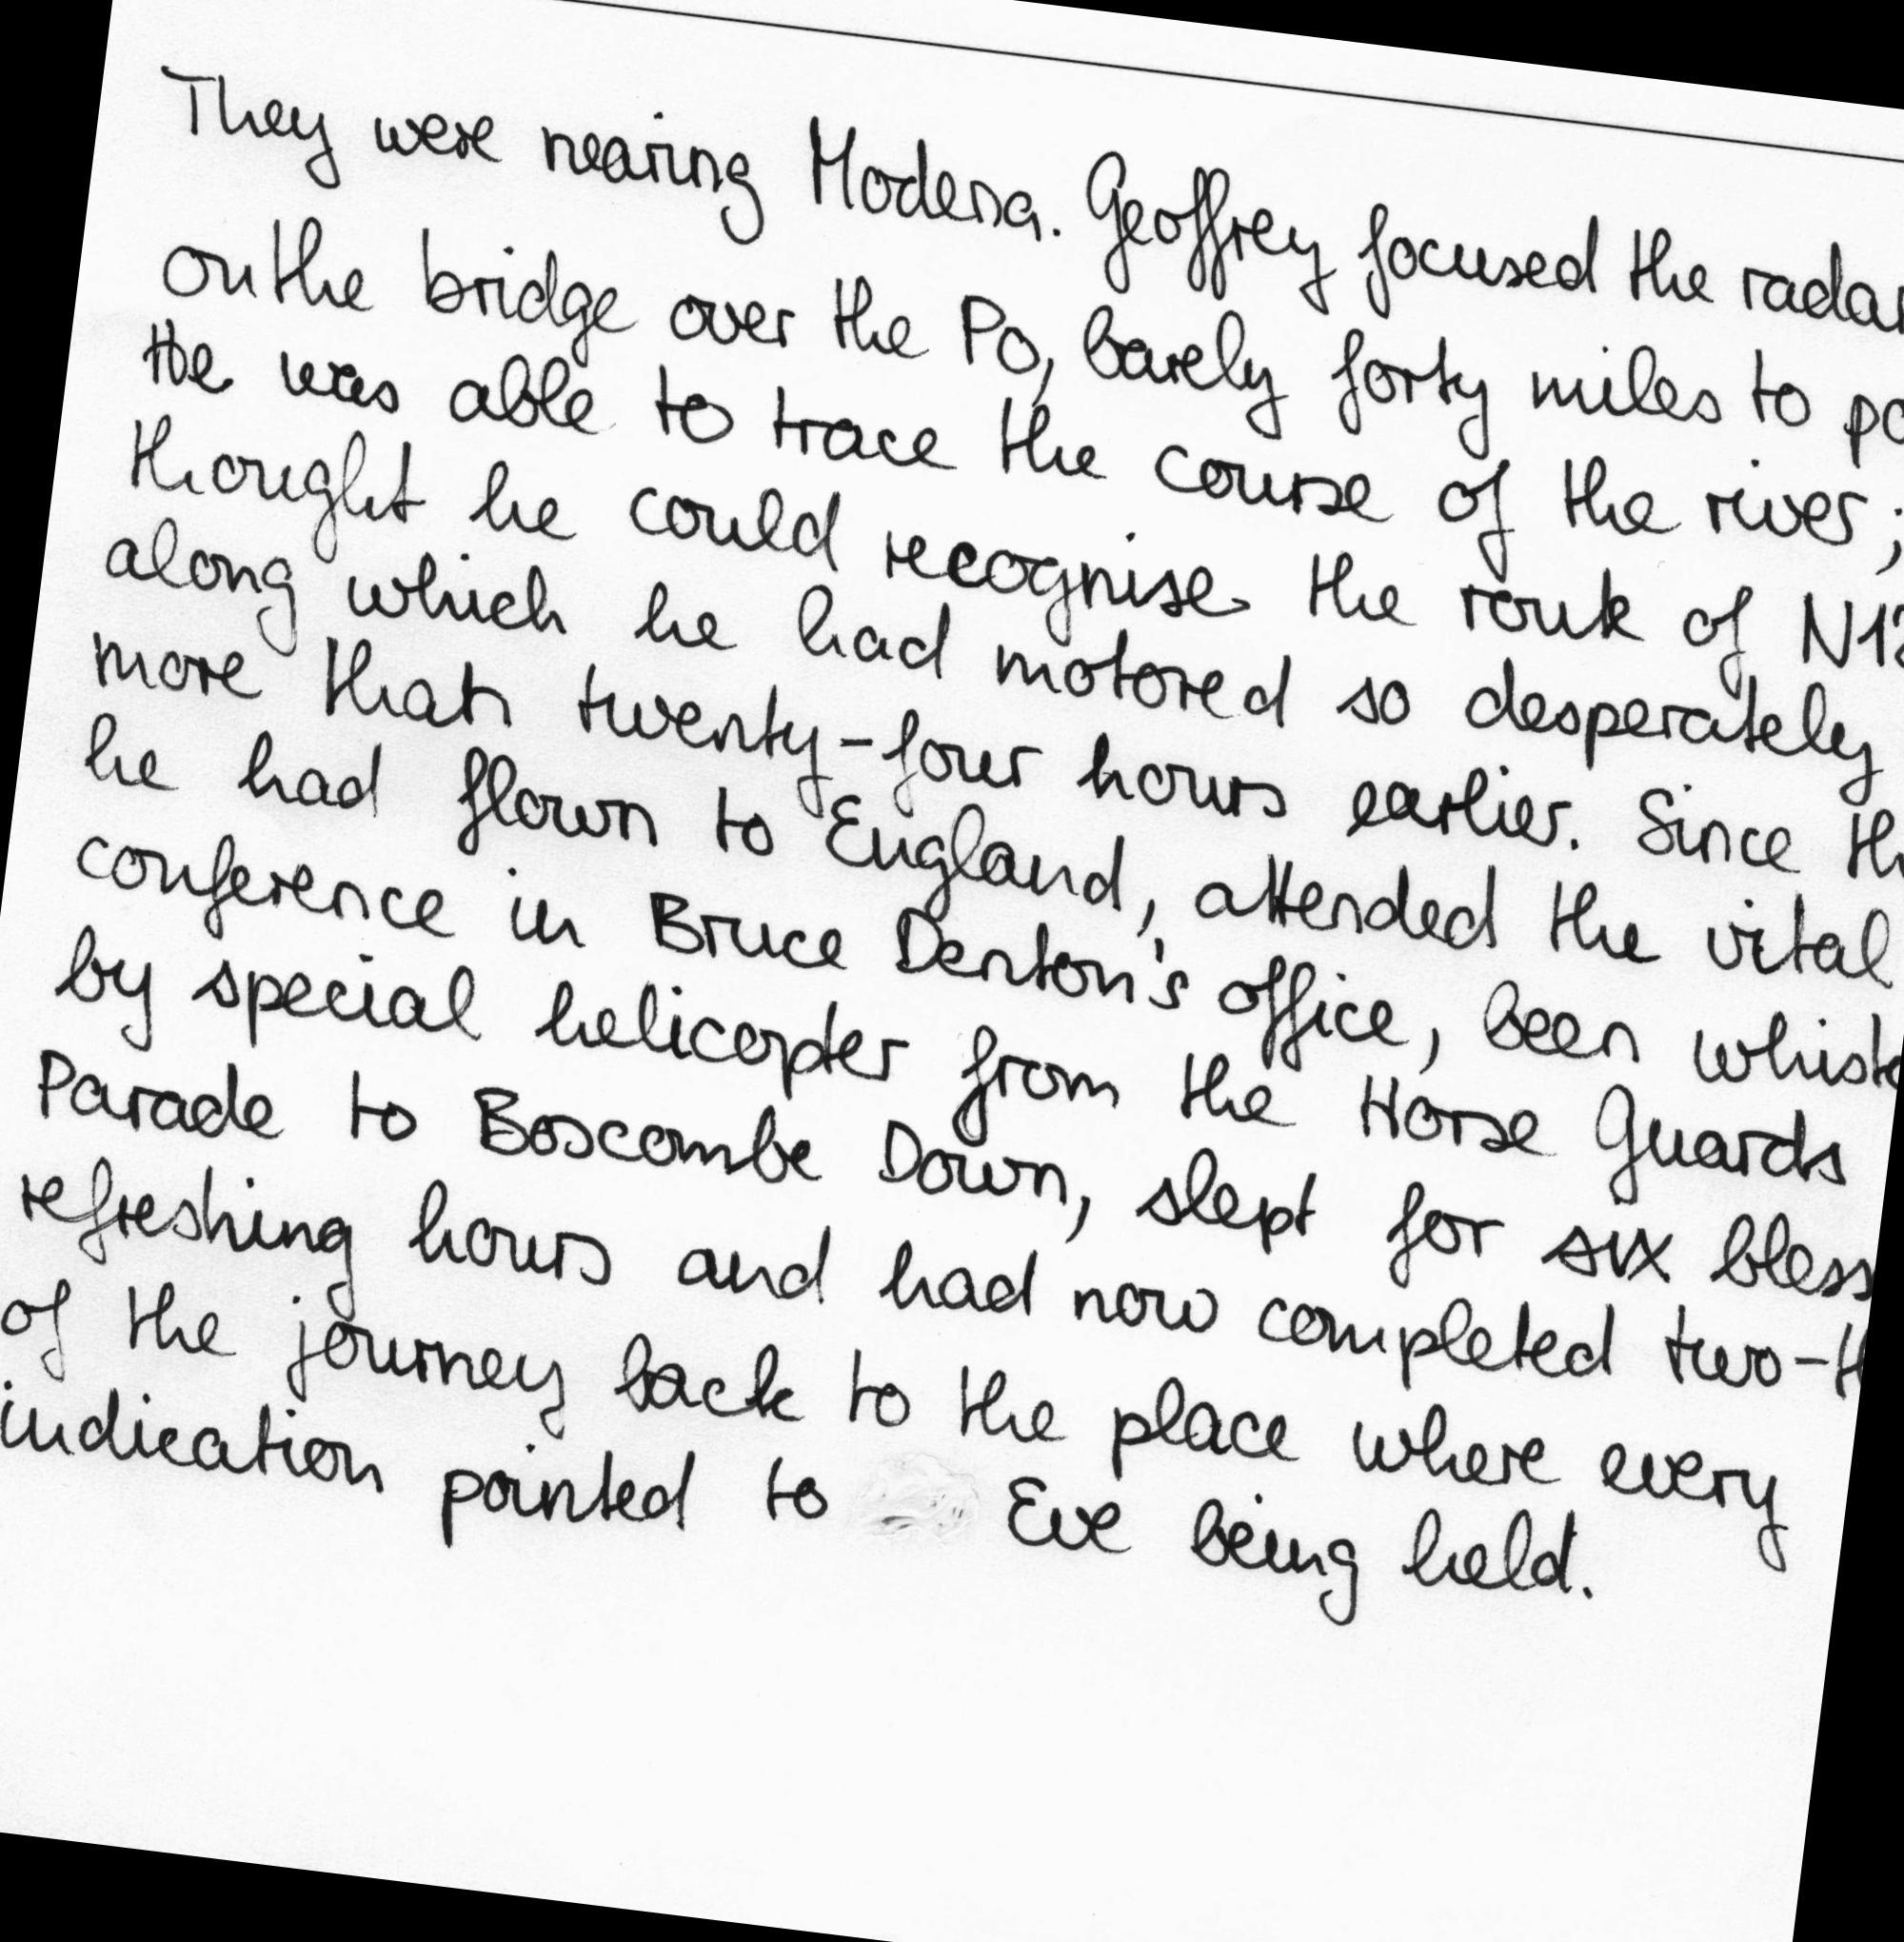 They were nearing Modena. Geoffrey focused the radar
on the bridge over the Po, barely forty miles to
He was able to trace the course of the river;
thought he could recognise the route of
along which he had motored so desperately
more than twenty-four hours earlier. Since
he had flown to England, attended the vital
conference in Bruce Denton's office, been
by special helicopter from the Horse Guards
Parade to Boscombe Down, slept for six
refreshing hours and had now completed
of the journey back to the place where every
indication pointed to Eve being held.